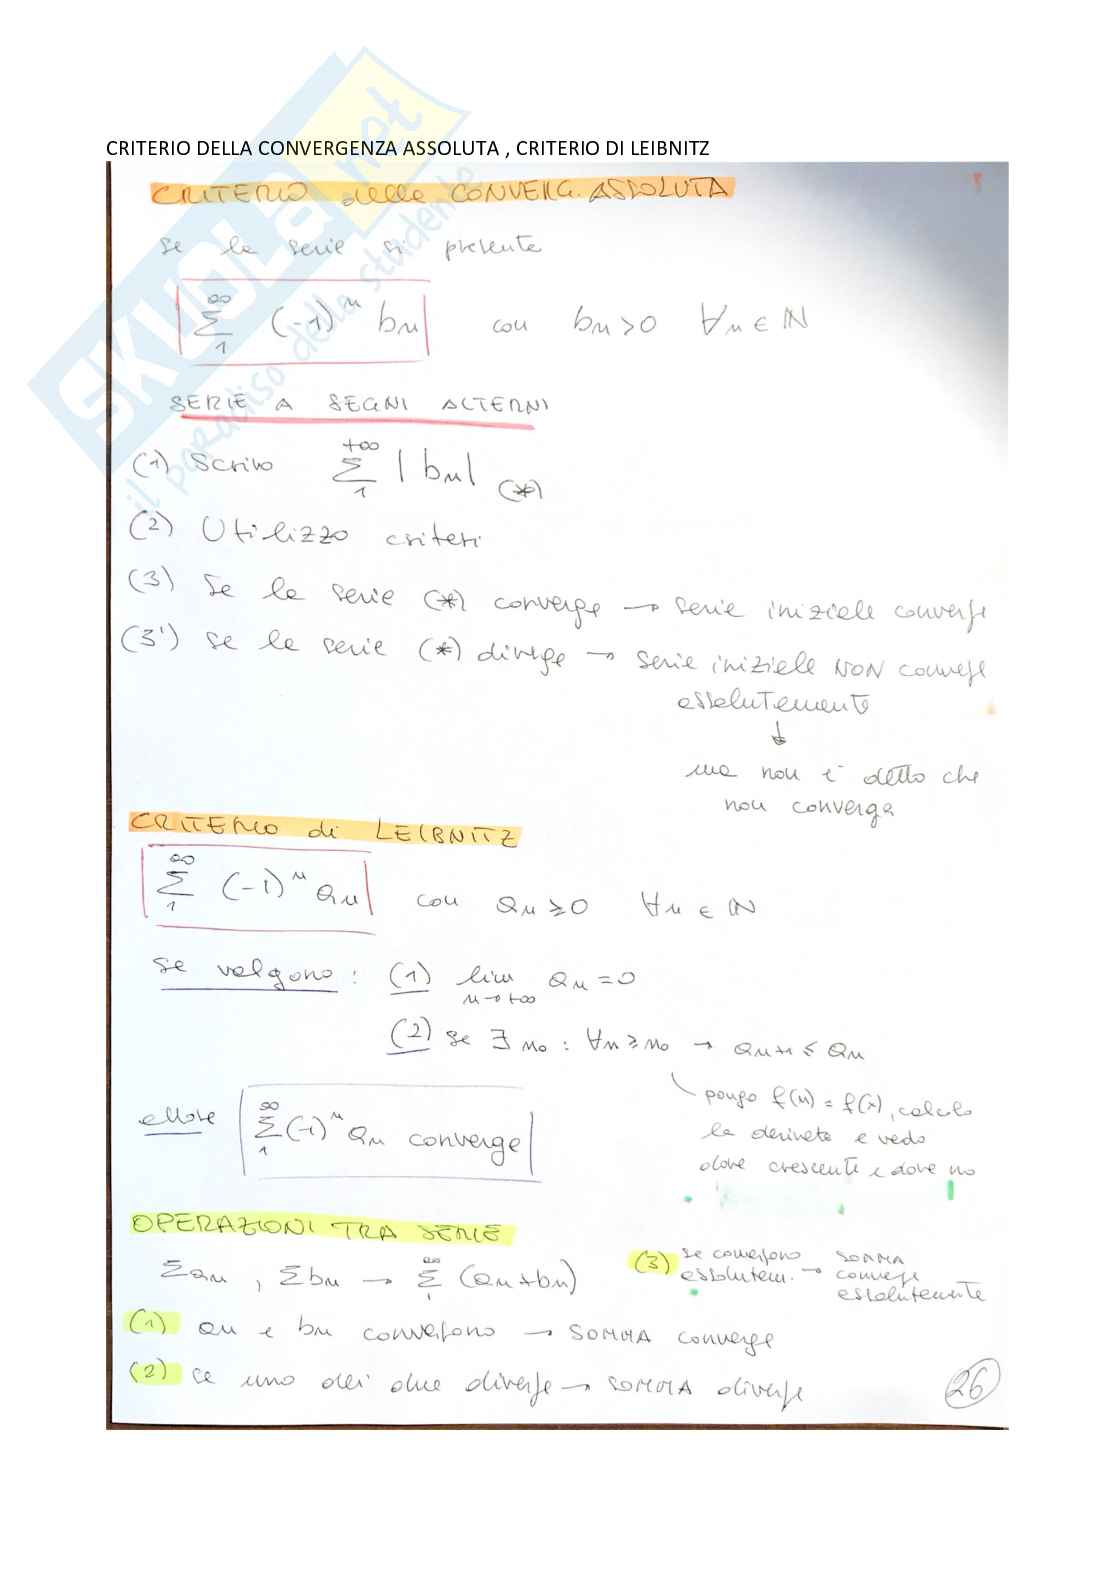 CRITERIO DELLA CONVERGENZA ASSOLUTA , CRITERIO DI LEIBNITZ
SKUOLA.net
il paradiso dello studente
CRITERIO della CONVERG. ASSOLUTA
se la serie si presenta
∞ Σ 1 (-1)ⁿ bn con bn>0 ∀n∈ℕ
SERIE A SEGNI ALTERNI
(1) Scrivo +∞ Σ 1 |bn| (*)
(2) Utilizzo criteri
(3) Se la serie (*) converge → serie iniziale converge
(3') se la serie (*) diverge → serie iniziale NON converge
assolutamente
↓
ma non è detto che
non converga
CRITERIO di LEIBNITZ
∞ Σ 1 (-1)ⁿ an con an ≥ 0 ∀n ∈ ℕ
se valgono : (1) lim n→+∞ an = 0
(2) se ∃ n₀ : ∀n ≥ n₀ → an+1 ≤ an
pongo f(n) = f(x), calcolo
la derivata e vedo
dove crescente e dove no
allora ∞ Σ 1 (-1)ⁿ an converge
OPERAZIONI TRA SERIE
Σan , Σbn → ∞ Σ 1 (an+bn)
(3) se convergono
assolutam. → SOMMA
converge
assolutamente
(1) an e bn convergono → SOMMA converge
(2) se uno dei due diverge → SOMMA diverge
26